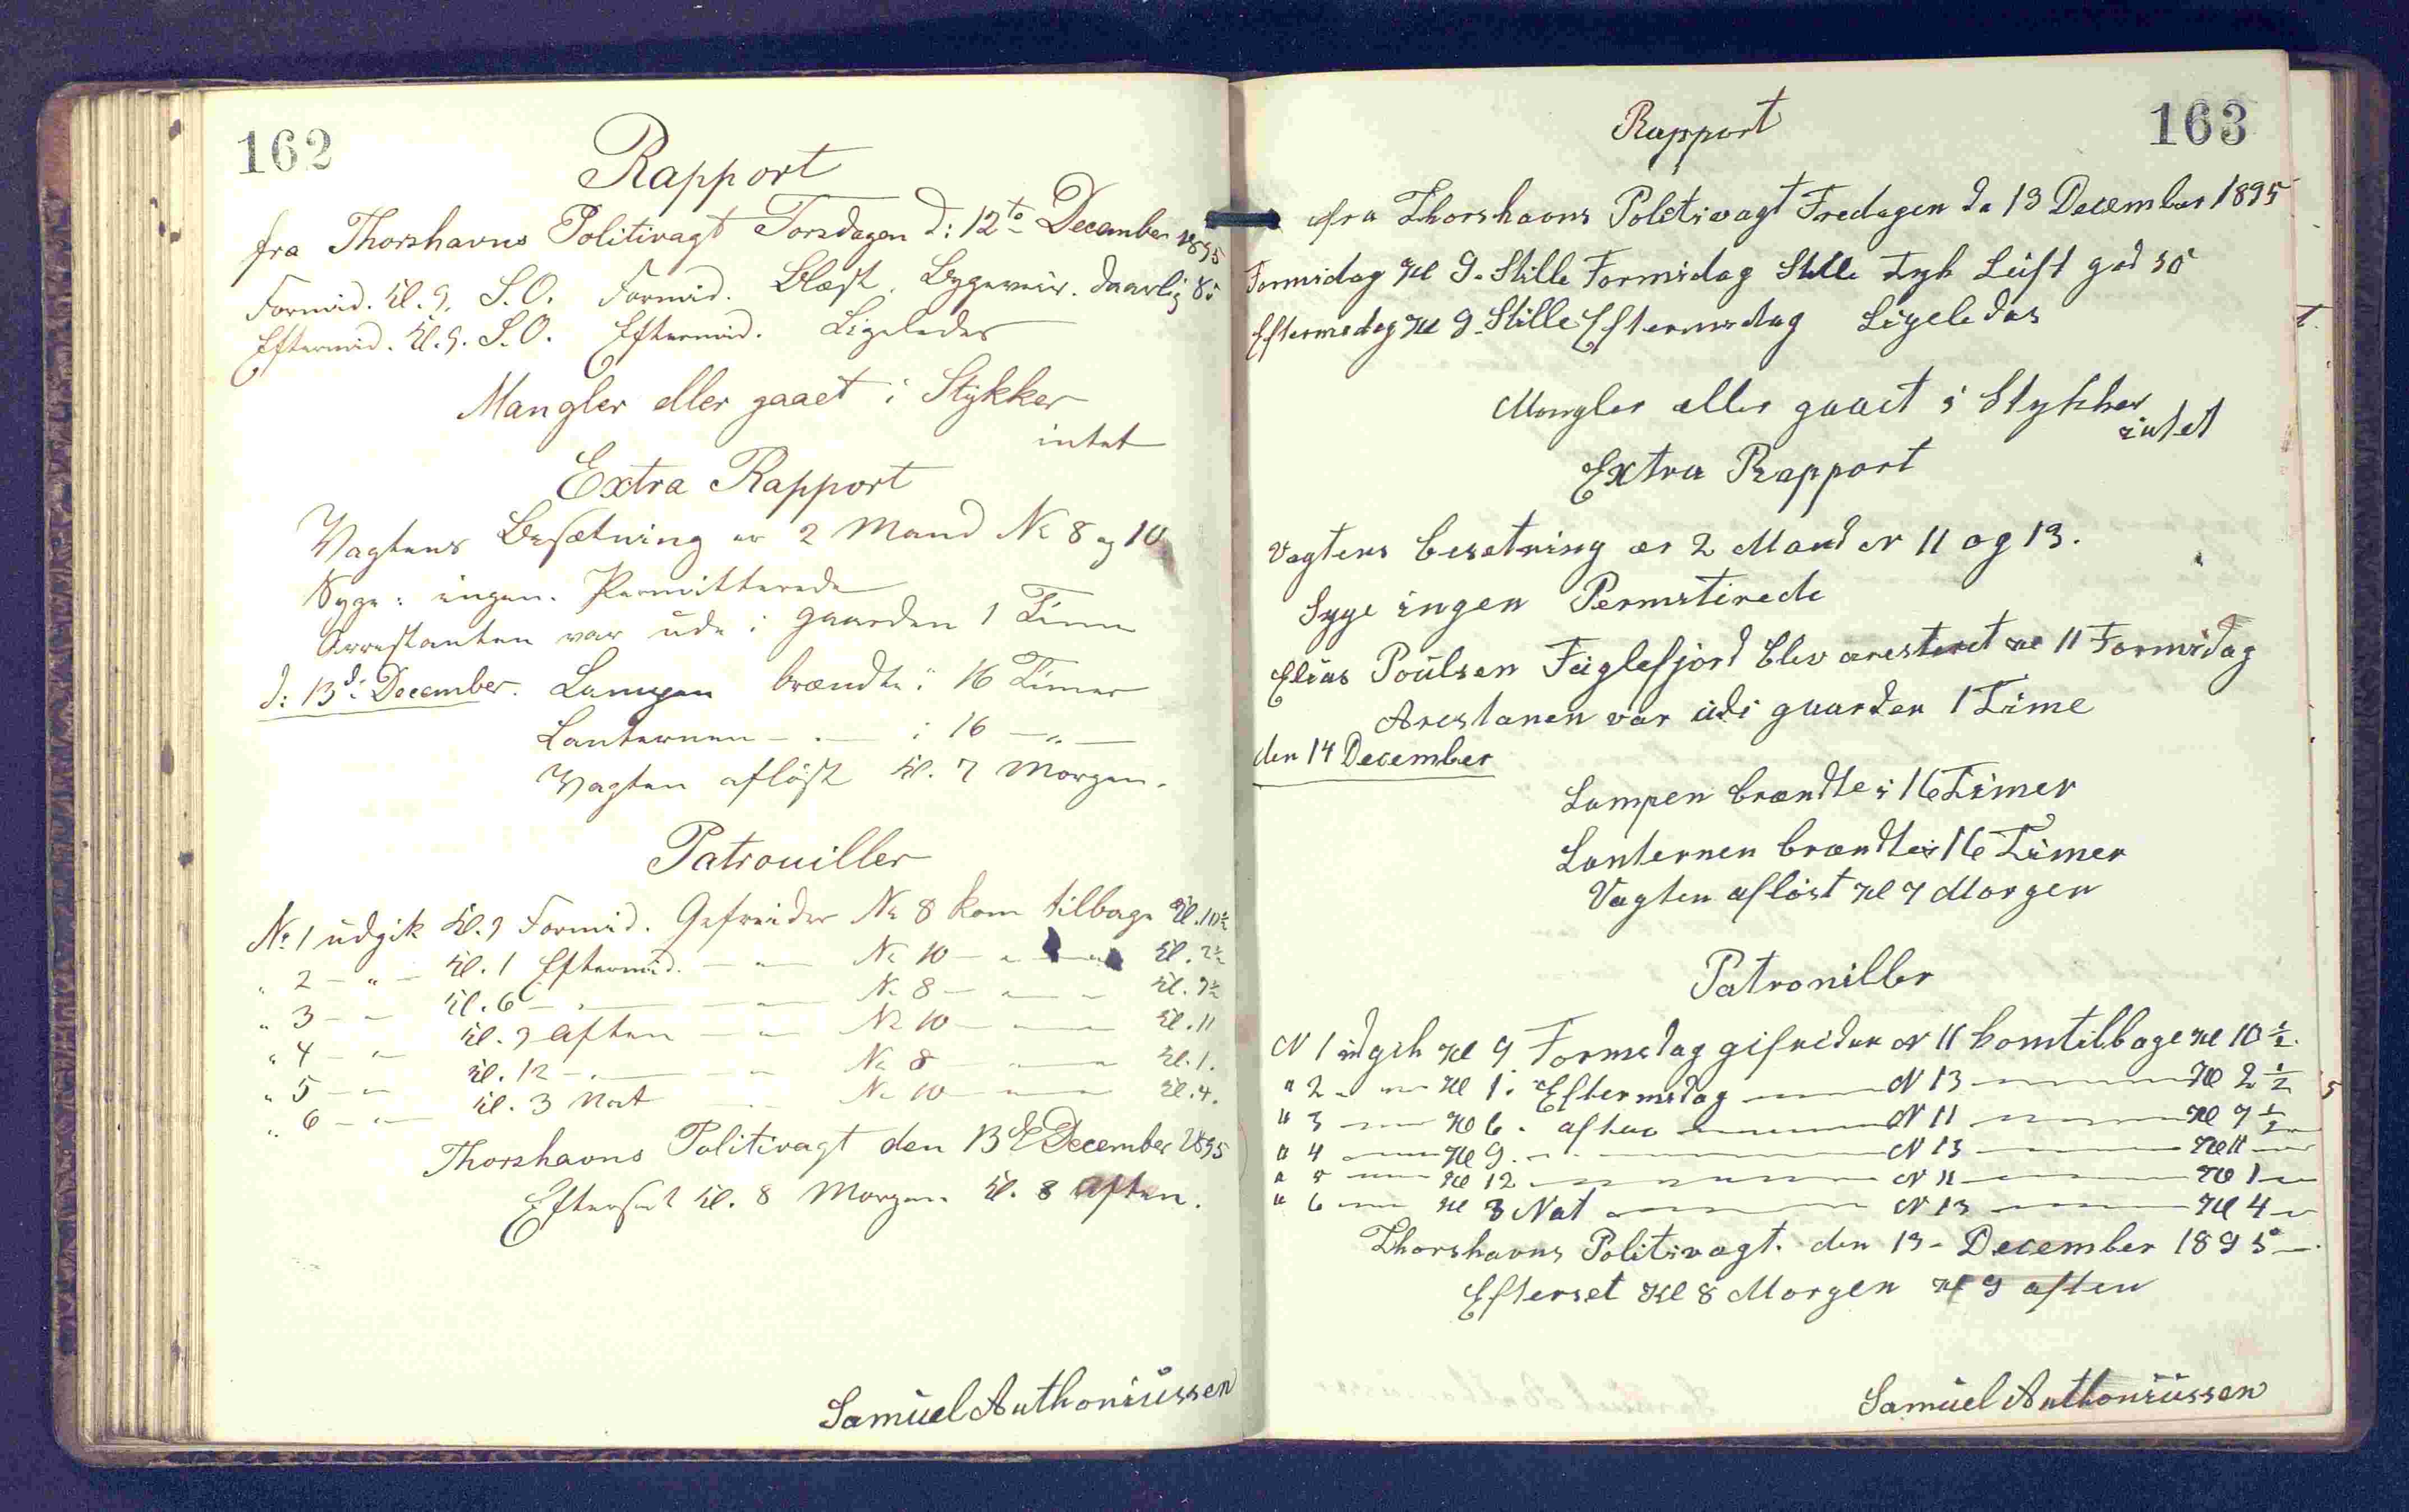 162
Rapport
fra Thorshavns Politivagt Torsdagen d: 12te December 1895
Formid. Kl. 9. S.O. Formid. Blæst. Bygeveir. daarlig Sö
Eftermid. Kl. 9. S.O. Eftermid. Ligeledes
Mangler eller gaaet i Stykker
intet
Extra Rapport
Vagtens Besætning er 2 Mand No 8 og 10
Syge: ingen. Permitterede
Arrestanten var ude i gaarden 1 Time
d: 13d: December. Lampen brændte i 16 Timer
Lanternen - . — i 16 — " —
Vagten aflöst Kl. 7 Morgen.
Patrouiller
No 1 udgik Kl. 9 Formid. Gefreider No 8 kom tilbage Kl. 10½
" 2 - " - Kl. 1 Eftermid. — " — No 10 — " — Kl. 2½
" 3 - " Kl. 6 — " — No 8 — " — Kl. 7½
" 4 - " Kl. 9 Aften — " — No 10 — " — Kl. 11
" 5 - " Kl. 12 — " — No 8 — " — Kl. 1.
" 6 - " Kl. 3 Nat — " — No 10 — " — Kl. 4.
Thorshavns Politivagt den 13de December 1895
Efterset Kl. 8 Morgen. Kl. 8 Aften.
Samuel Anthoniussen
163
Rapport
fra Thorshavns Politivagt Fredagen de 13 December 1895
Formidag Kl 9. Stille Formidag Stille Tyk Luft god sö
Eftermedag Kl 9. Stille Eftermidag Ligeledas
Mangler eller gaaet i Stykker
intet
Extra Rapport
Vagtens besetning er 2 Mand N 11 og 13.
Syge ingen Permiterede
Elias Poulsen Fuglefjord blev aresteret Kl 11 Formidag
Arestanen var udi gaarden 1 Time
den 14 December
Lampen brændte i 16 Timer
Lanternen brændte i 16 Timer
Vagten aflöst Kl 7 Morgen
Patroniller
N 1 udgik Kl 9 Formidag gifreider N 11 kom tilbage Kl 10½.
" 2 — Kl 1. Eftermidag — N 13 — Kl 2½
" 3 — Kl 6. aften — N 11 — Kl 7½
" 4 — Kl 9. — N 13 — Kl 11
" 5 — Kl 12 — N 11 — Kl 1
" 6 — Kl 3 Nat — N 13 — Kl 4
Thorshavns Politivagt. den 13- December 1895
Efterset Kl 8 Morgen Kl 9 aften
Samuel Anthoniussen